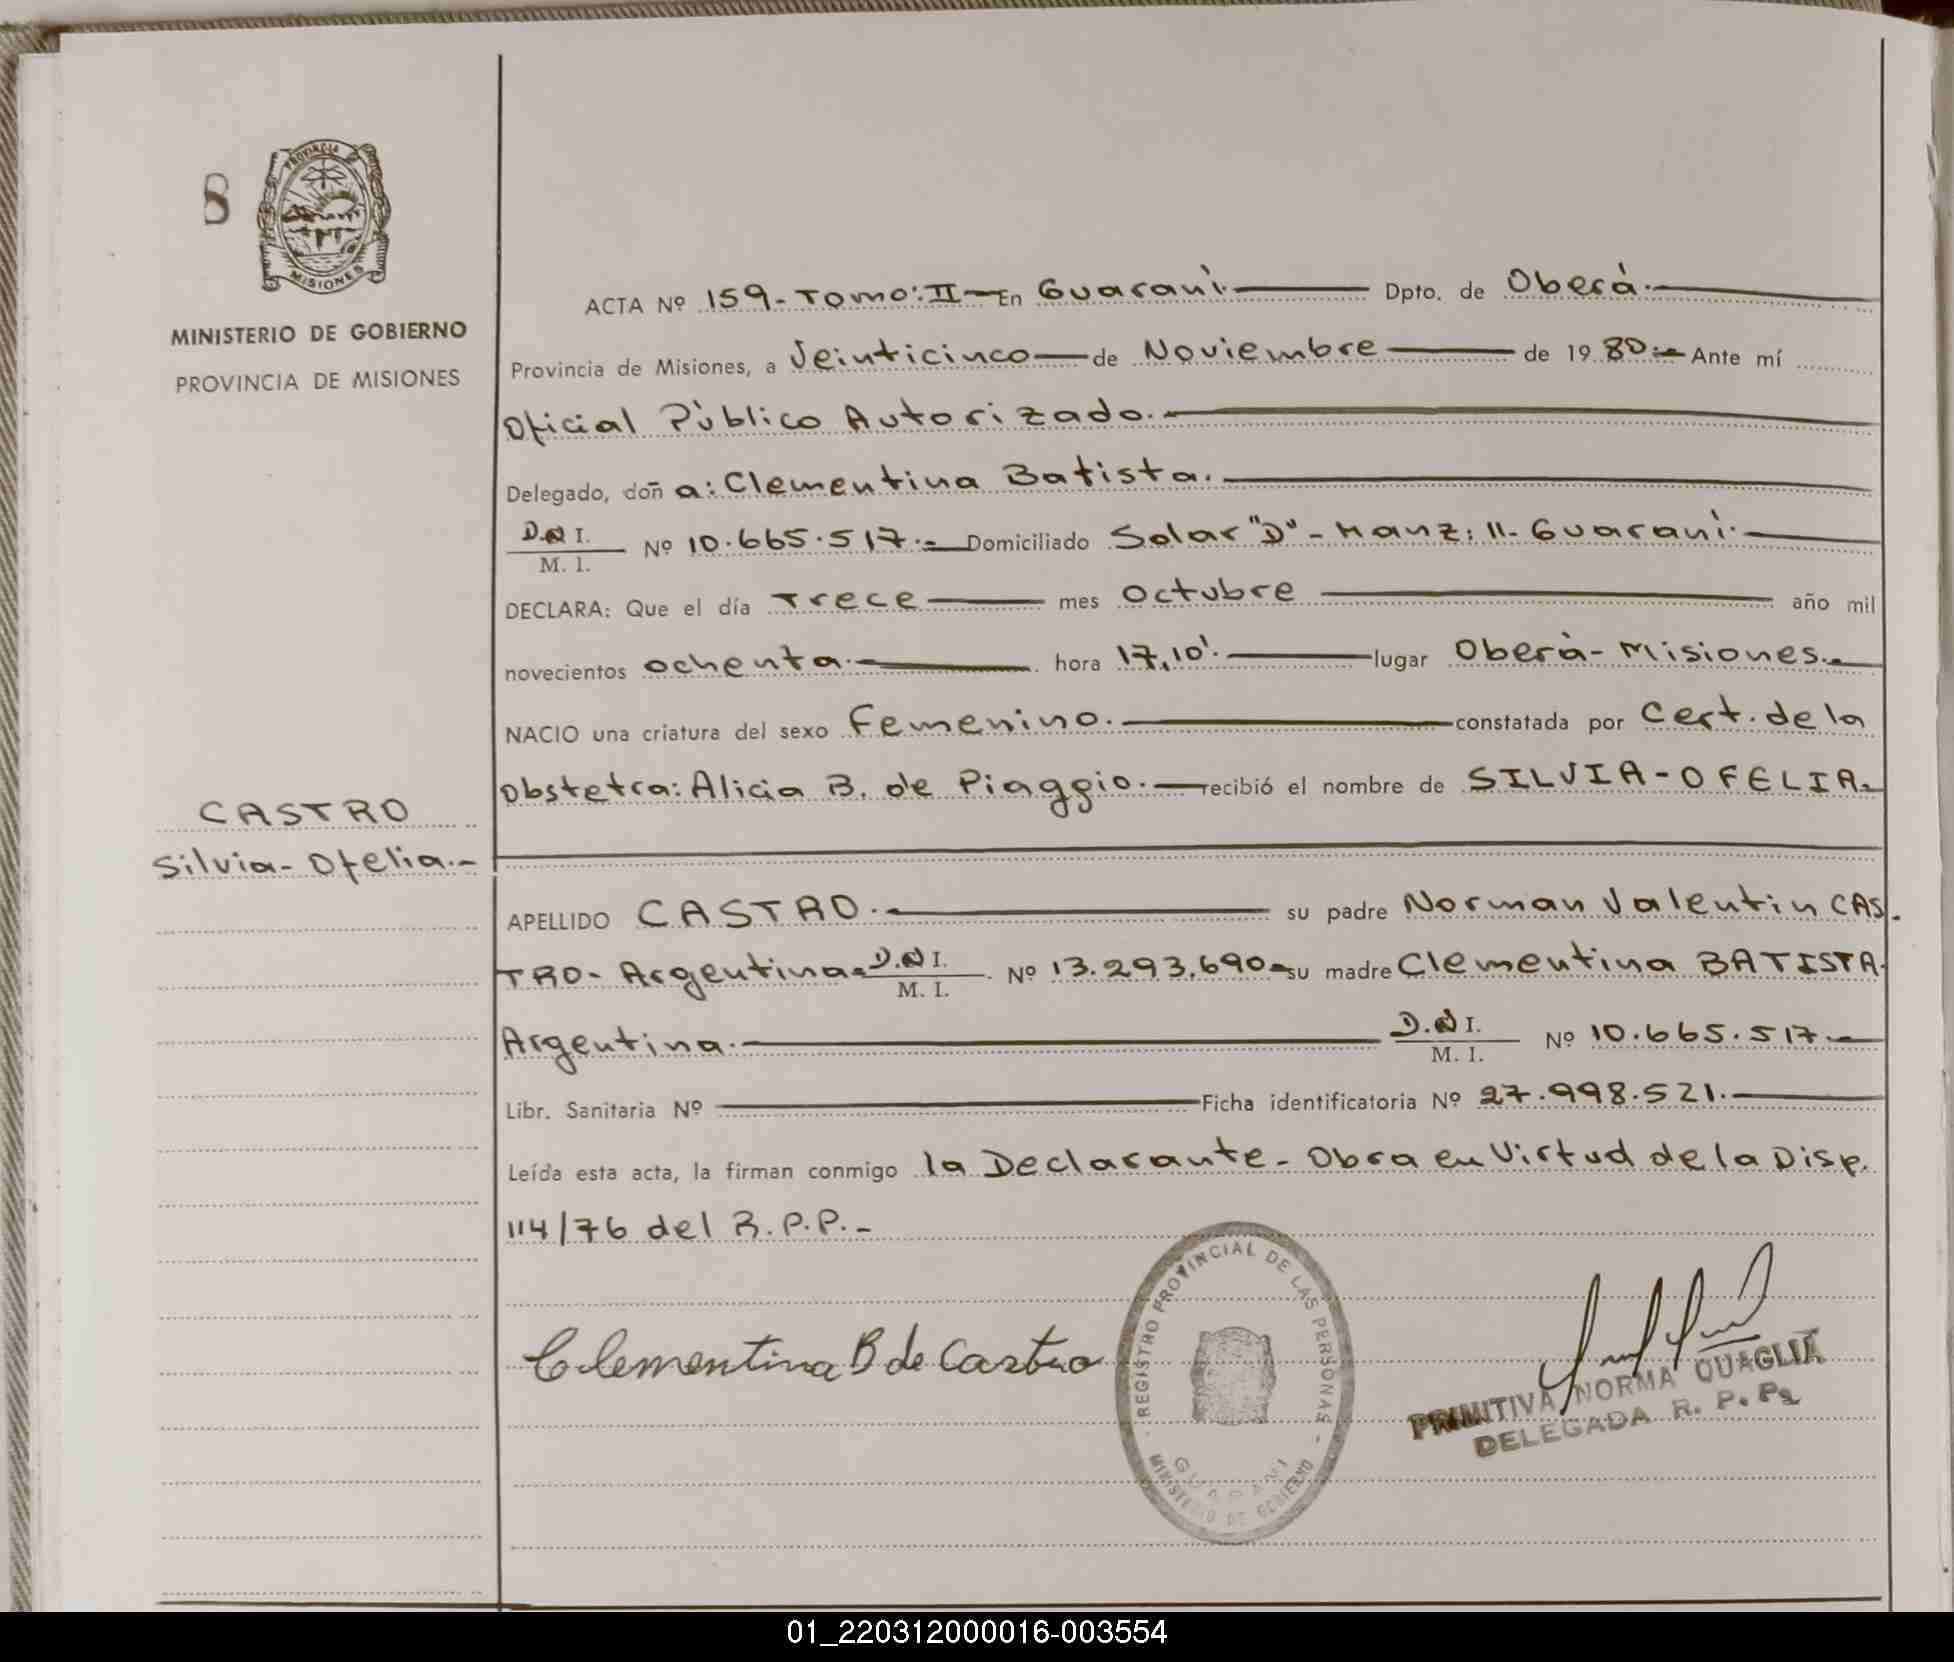 8
PROVINCIA
MISIONES
MINISTERIO DE GOBIERNO
PROVINCIA DE MISIONES
ACTA Nº 159.- Tomo: II- En Guaraní.- Dpto. de Oberá.-
Provincia de Misiones, a Veinticinco de Noviembre de 1980.- Ante mí
Oficial Público Autorizado.-
Delegado, doñ a: Clementina Batista.
D.N I.
M. I.
Nº 10.665.517.- Domiciliado Solar "D" - Manz: 11- Guaraní.-
DECLARA: Que el día Trece mes Octubre año mil
novecientos ochenta.- hora 17,10'.- lugar Oberá- Misiones.-
NACIO una criatura del sexo Femenino.- constatada por Cert. de la
Obstetra: Alicia B. de Piaggio.- recibió el nombre de SILVIA-OFELIA.-
CASTRO
Silvia- Ofelia.-
APELLIDO CASTRO.- su padre Norman Valentin CAS.
TRO- Argentina- D.N I.
M. I.
Nº 13.293.690- su madre Clementina BATISTA-
Argentina.- D.N I.
M. I.
Nº 10.665.517.-
Libr. Sanitaria Nº Ficha identificatoria Nº 27.998.521.-
Leída esta acta, la firman conmigo la Declarante- Obra en Virtud de la Disp.
114/76 del R.P.P.-
Clementina B de Castro
REGISTRO PROVINCIAL DE LAS PERSONAS
GUARANI
MINISTERIO DE GOBIERNO
PRIMITIVA NORMA QUAGLIA
DELEGADA R. P. P.
01_220312000016-003554